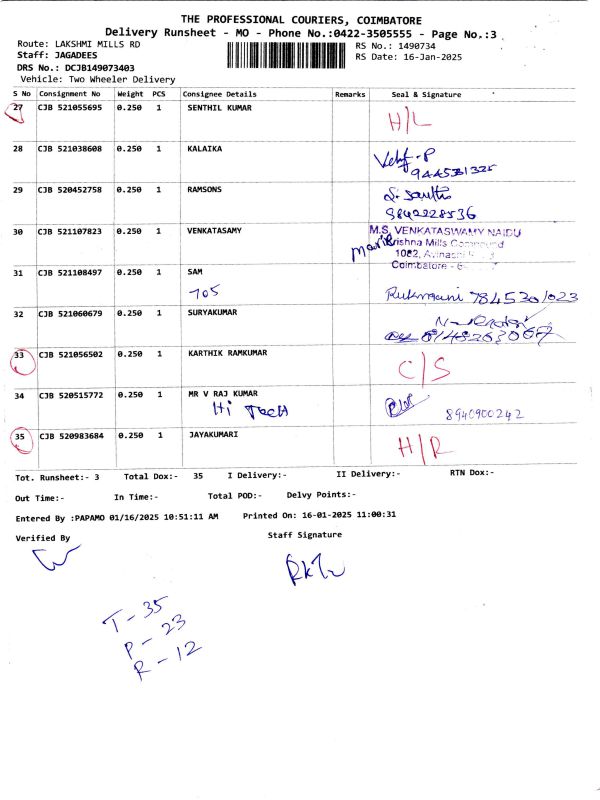 THE PROFESSIONAL COURIERS, COIMBATORE
Delivery Runsheet - MO - Phone No.:0422-3505555 - Page No.:3
Route: LAKSHMI MILLS RD
RS No.: 1490734
Staff: JAGADEES
RS Date: 16-Jan-2025
DRS No.: DCJB149073403
Vehicle: Two Wheeler Delivery
S No Consignment No Weight PCS Consignee Details Remarks Seal & Signature
27 CJB 521055695 0.250 1 SENTHIL KUMAR H/L
28 CJB 521038608 0.250 1 KALAIKA
9445381325
29 CJB 520452758 0.250 1 RAMSONS
9842228536
30 CJB 521107823 0.250 1 VENKATASAMY M.S. VENKATASWAMY NAIDU
Krishna Mills Compound
1082, Avinashi
Coimbatore - 6
31 CJB 521108497 0.250 1 SAM
705 Rukmani 7845301023
32 CJB 521060679 0.250 1 SURYAKUMAR
33 CJB 521056502 0.250 1 KARTHIK RAMKUMAR C/S
34 CJB 520515772 0.250 1 MR V RAJ KUMAR
Hi Tech 8940900242
35 CJB 520983684 0.250 1 JAYAKUMARI H/R
Tot. Runsheet:- 3 Total Dox:- 35 I Delivery:- II Delivery:- RTN Dox:-
Out Time:- In Time:- Total POD:- Delvy Points:-
Entered By :PAPAMO 01/16/2025 10:51:11 AM Printed On: 16-01-2025 11:00:31
Verified By Staff Signature
T - 35
P - 23
R - 12